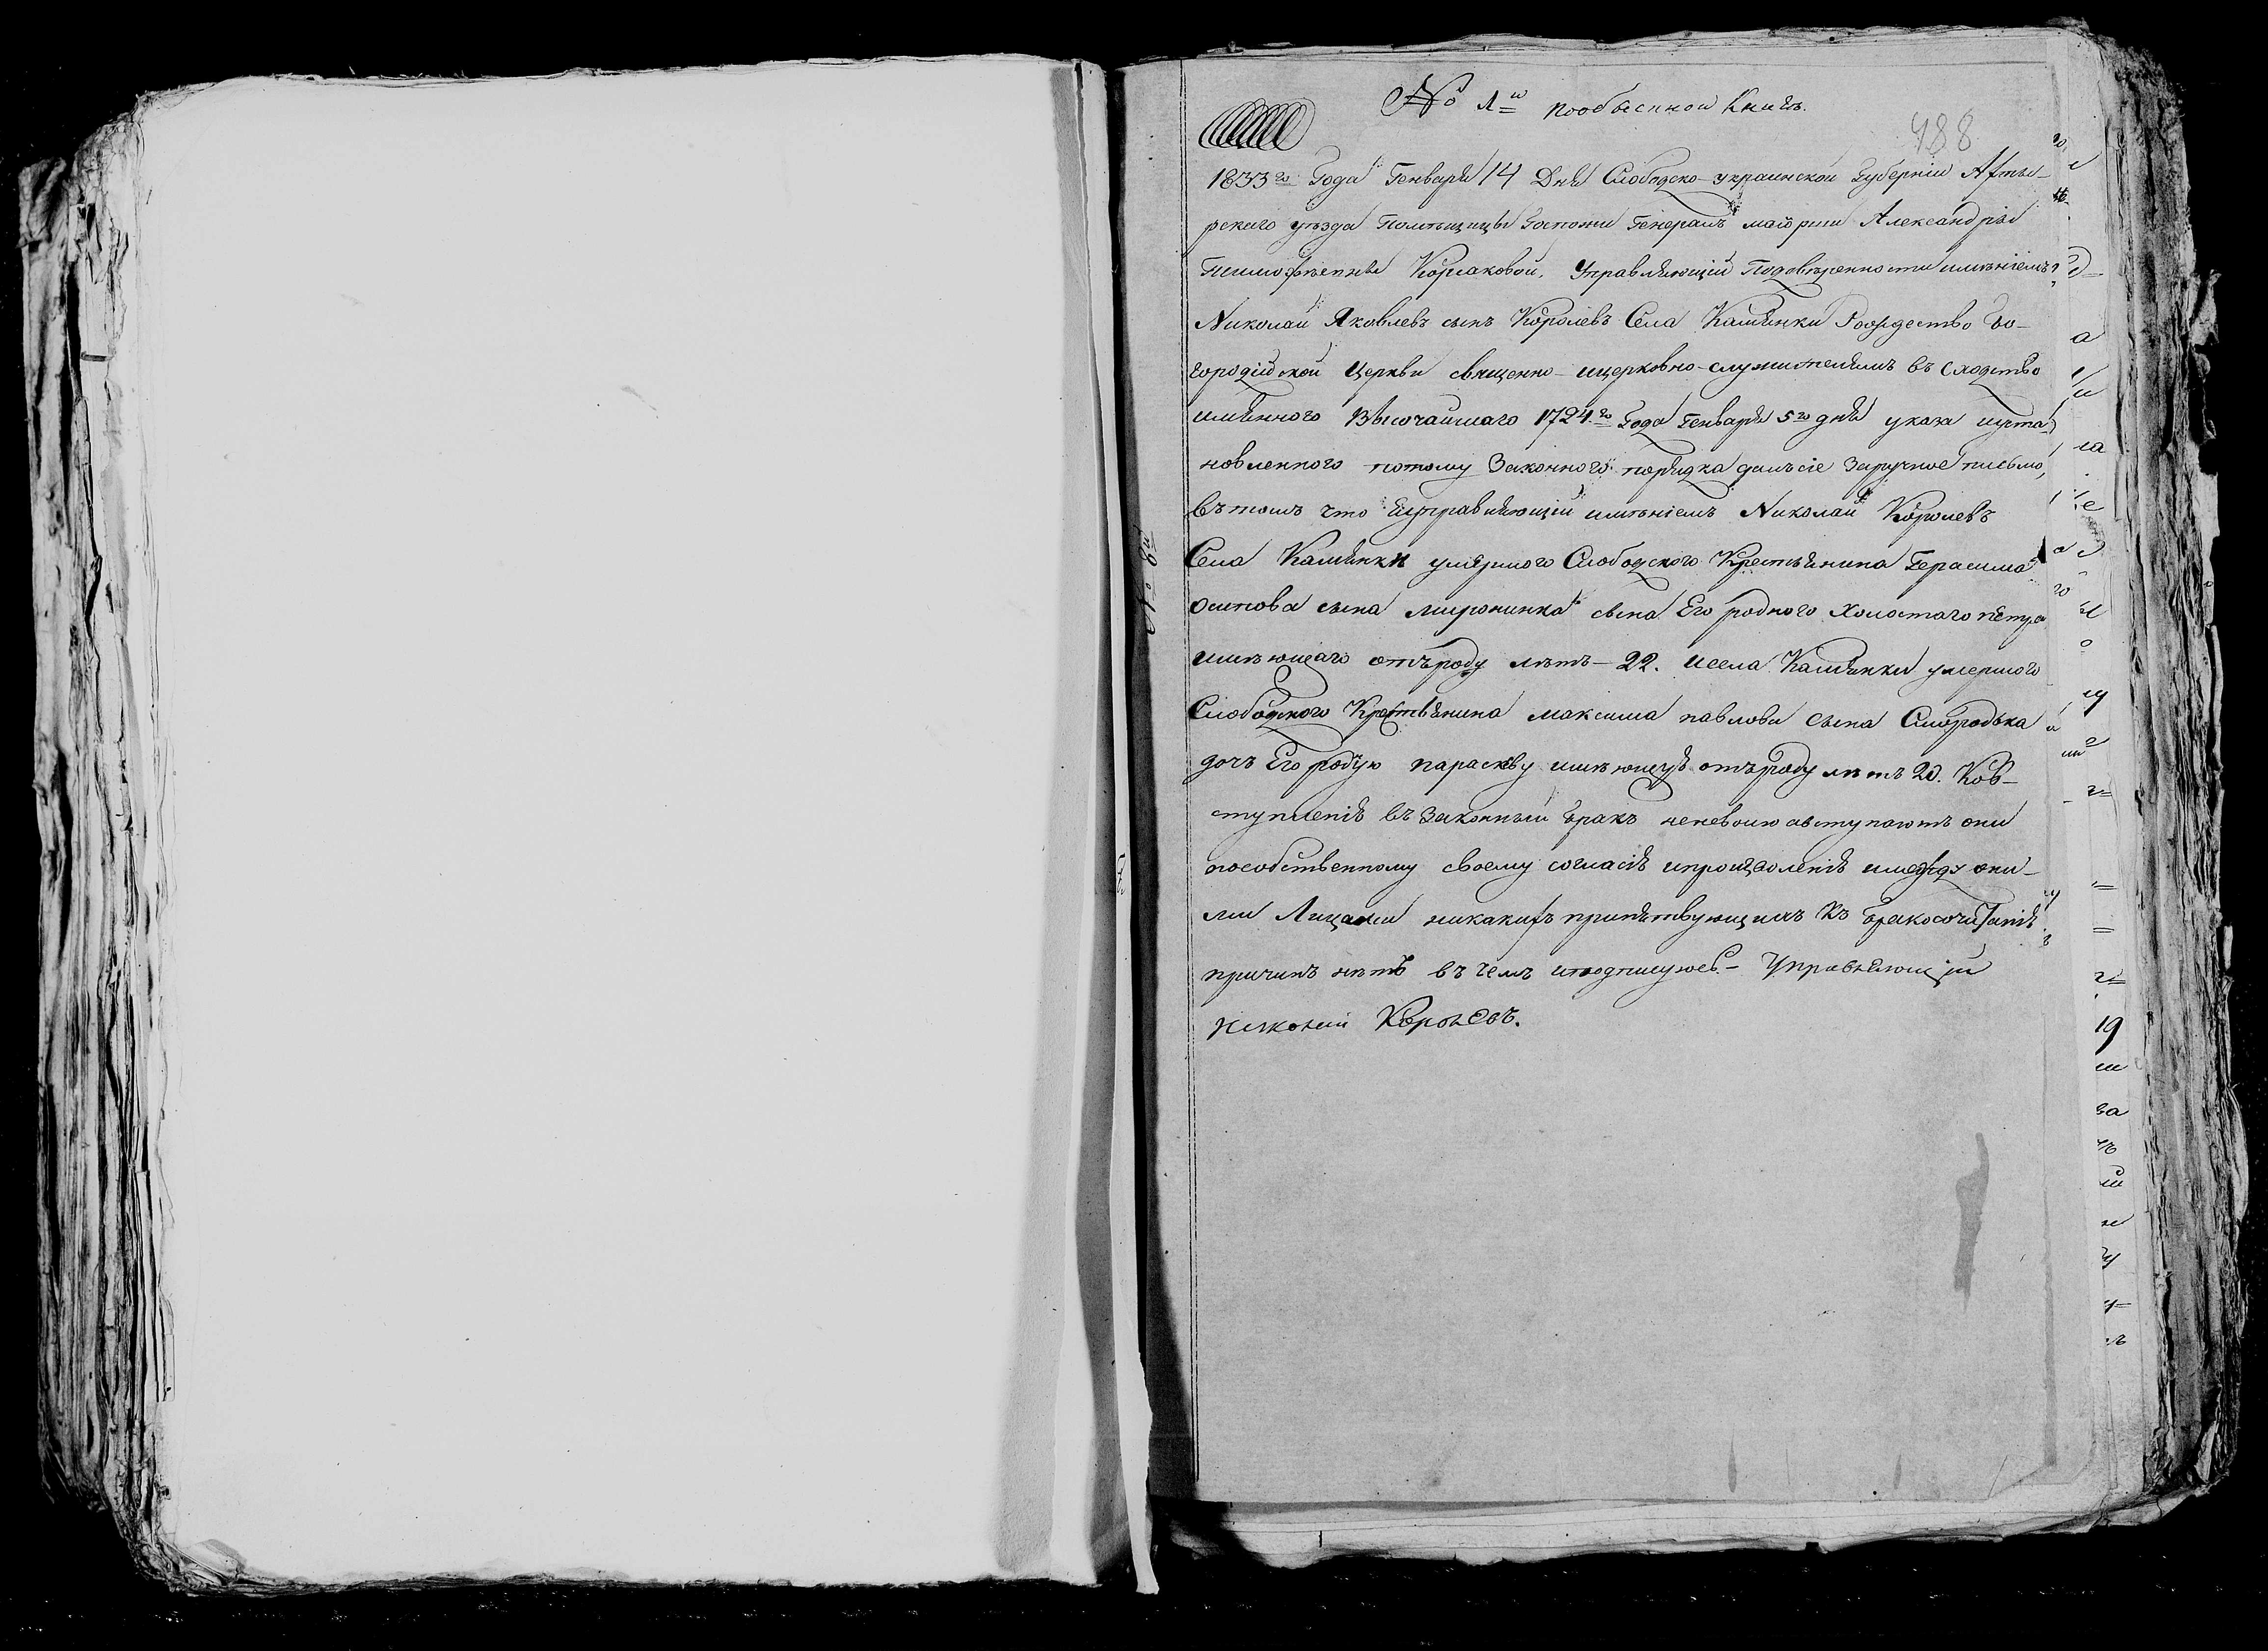 № 1й пообыскной Книгѣ.
488
1833го Года Генваря 14 Дня Слободско-украинской Губерніи Ахты-
рского уѣзда Помѣщицы Госпожи Генералъ маіорши Александры
Тимофѣевны Корсаковой, Управляющій Подовѣренности имѣніемъ
Николай Яковлевъ сынъ Королевъ Села Камянки Рождество Бо-
городицкой Церкви священно-ицерковно-служителямъ въ сходство
имяннаго Высочайшаго 1724го Года Генваря 5го дня указа иуста-
новленного потому Законного порядка далъ сіе Заручное письмо,
въ томъ что Управляющій имѣніемъ Николай Королевъ
Села Камянки умершого Слободского Крестьянина Герасима
осипова сына миронинка сына Его родного холостаго петра
имѣющаго отъроду лѣтъ-22. исела Камянки умершого
Слободского Крестьянина максима павлова сына Смородька
дочь Его родную параскеву имѣющую отъроду лѣтъ 20. Ков-
ступленію въ Законный бракъ неневолю авступаютъ они
пособственному своему согласію ипроизволенію имежду они-
ми Лицами никакихъ препятствующихъ Къ бракосочитанію
причинъ нѣтъ въ чемъ иподписуюсь.- Управляющій
Николай Королевъ.